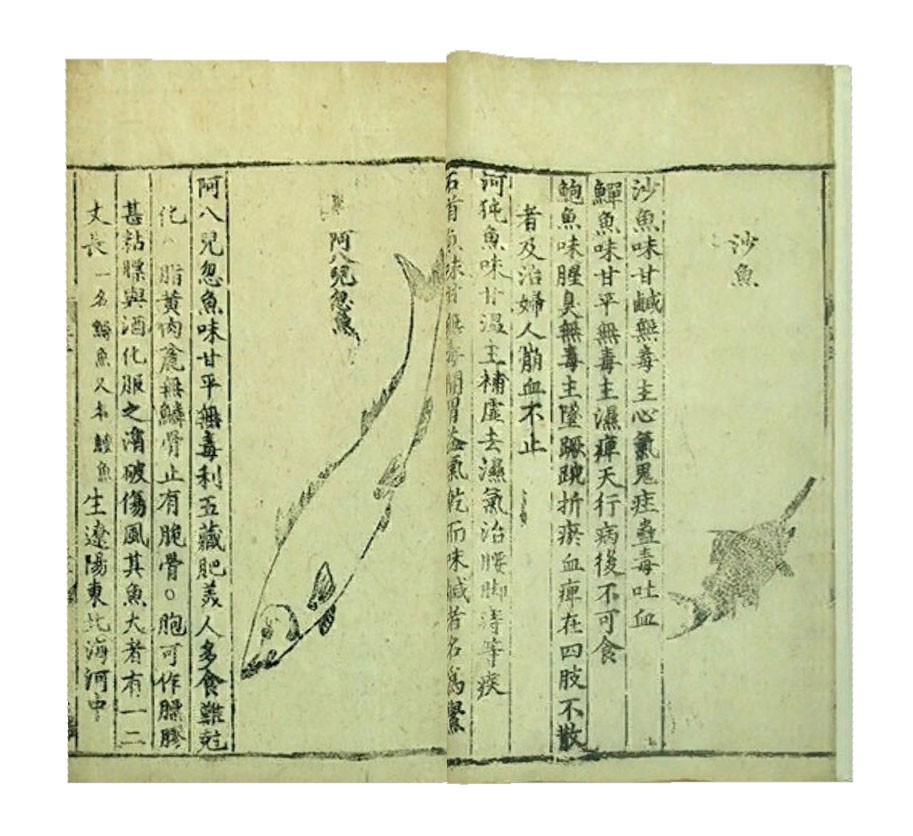 沙魚
沙魚味甘鹹無毒主心氣鬼疰蠱毒吐血
鱓魚味甘平無毒主濕痺天行病後不可食
鮑魚味腥臭無毒主墜蹶踠折瘀血痺在四肢不散
者及治婦人崩血不止
河㹠魚味甘溫主補虛去濕氣治腰脚痔等疾
石首魚味甘無毒開胃益氣乾而味鹹者名為鯗
阿八兒忽魚
阿八兒忽魚味甘平無毒利五藏肥美人多食難尅
化脂黃肉麄無鱗骨止有脆骨○胞可作膘膠
甚粘膘與酒化服之消破傷風其魚大者有一二
丈長一名鱘魚又名鱣魚生遼陽東北海河中